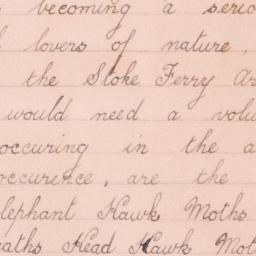 becoming a serio
lovers of nature,
the Stoke Ferry Ar
would need a volu
occuring in the a
occurence, are the
lephant Hawk Moths
eaths Head Hawk Mot